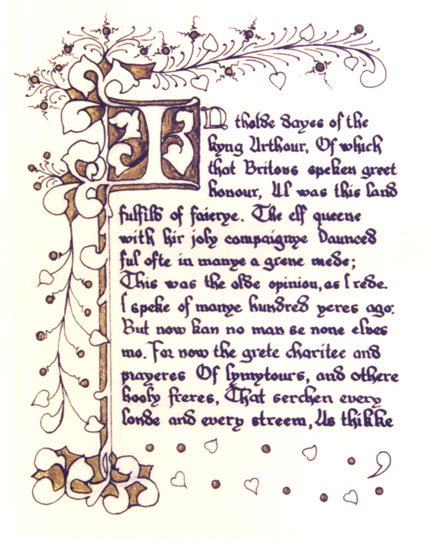 In tholde dayes of the
kyng Arthour, Of which
that Britons speken greet
honour, Al was this land
fulfild of faierye. The elf queene
with hir joly compaignye Daunced
ful ofte in manye a grene mede;
This was the olde opinion, as I rede.
I speke of manye hundred yeres ago:
But now kan no man se none elves
mo. For now the grete charitee and
prayeres Of lymytours, and othere
hooly freres, That serchen every
londe and every streem, As thikke